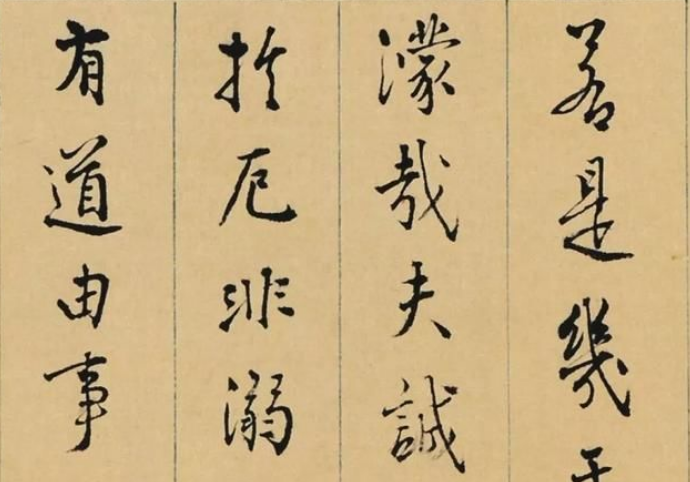 若是幾乎
濛哉夫誠
於厄非溺
有道由事